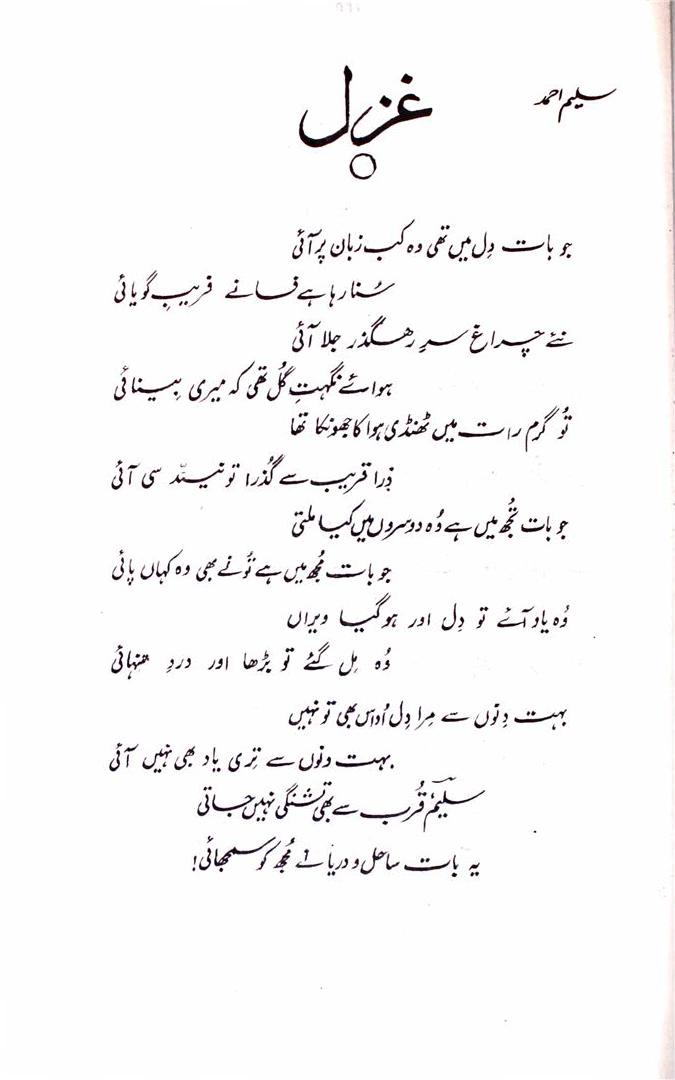 سلیم احمد
غزل
جو بات دِل میں تھی وہ کب زبان پر آئی
سُنا رہا ہے فسانے فریبِ گویائی
نئے چراغ سرِ رہگذر جلا آئی
ہوائے نگہتِ گُل تھی کہ میری بِینائی
تُو گرم رات میں ٹھنڈی ہوا کا جھونکا تھا
ذرا قریب سے گُذرا تو نیند سی آئی
جو بات تُجھ میں ہے وُہ دوسروں میں کیا ملتی
جو بات مُجھ میں ہے تُو نے بھی وہ کہاں پائی
وُہ یاد آئے تو دِل اور ہو گیا ویراں
وُہ مِل گئے تو بڑھا اور دردِ تنہائی
بہت دِنوں سے مِرا دِل اُداس بھی تو نہیں
بہت دنوں سے تِری یاد بھی نہیں آئی
سلیمؔ قُرب سے بھی تشنگی نہیں جاتی
یہ بات ساحل و دریا نے مُجھ کو سمجھائی!